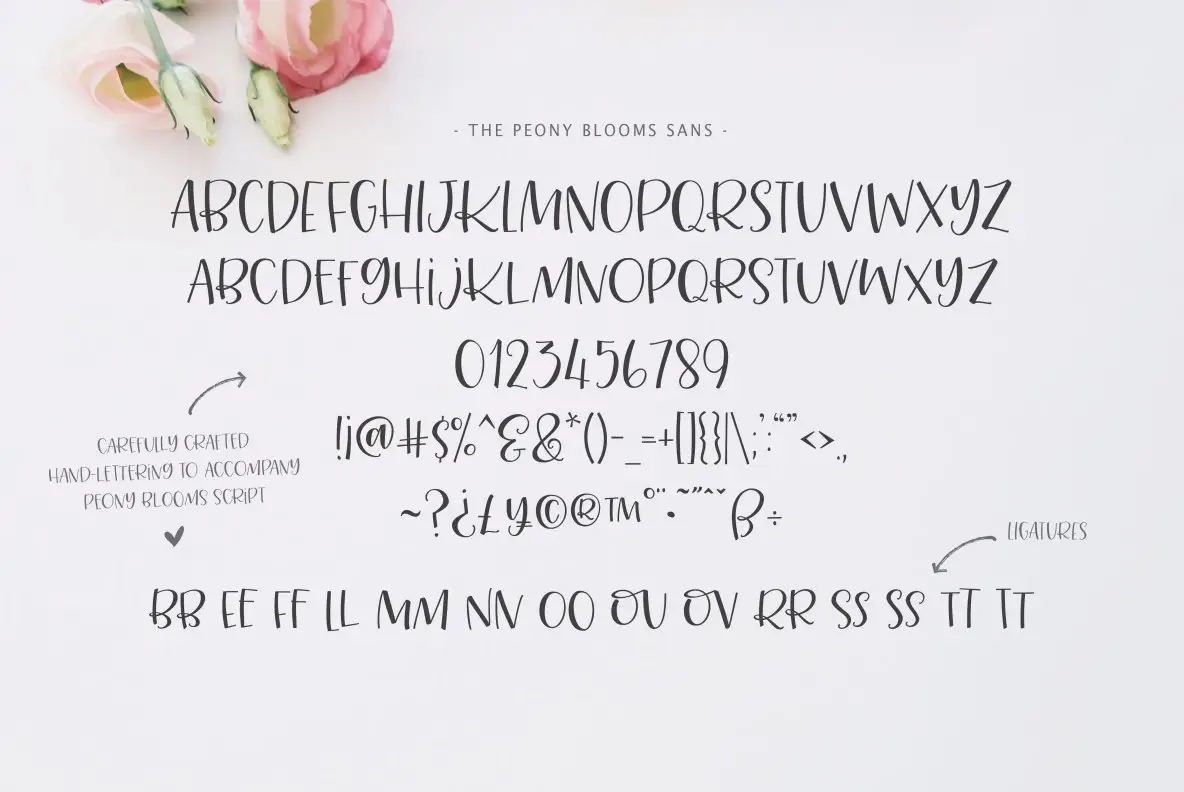 - THE PEONY BLOOMS SANS -
ABCDEFGHIJKLMNOPQRSTUVWXYZ
ABCDEFGHijKLMNOPQRSTUVWXYZ
0123456789
!¡@#$%^&&*()-_=+[]{}|\;:'“”<>.,
~?¿£¥©®™°¨·˜˝ˆˇß÷
CAREFULLY CRAFTED
HAND-LETTERiNG TO ACCOMPANY
PEONY BLOOMS SCRiPT
LIGATURES
BB EE FF LL MM NN OO OU OV RR SS SS TT TT